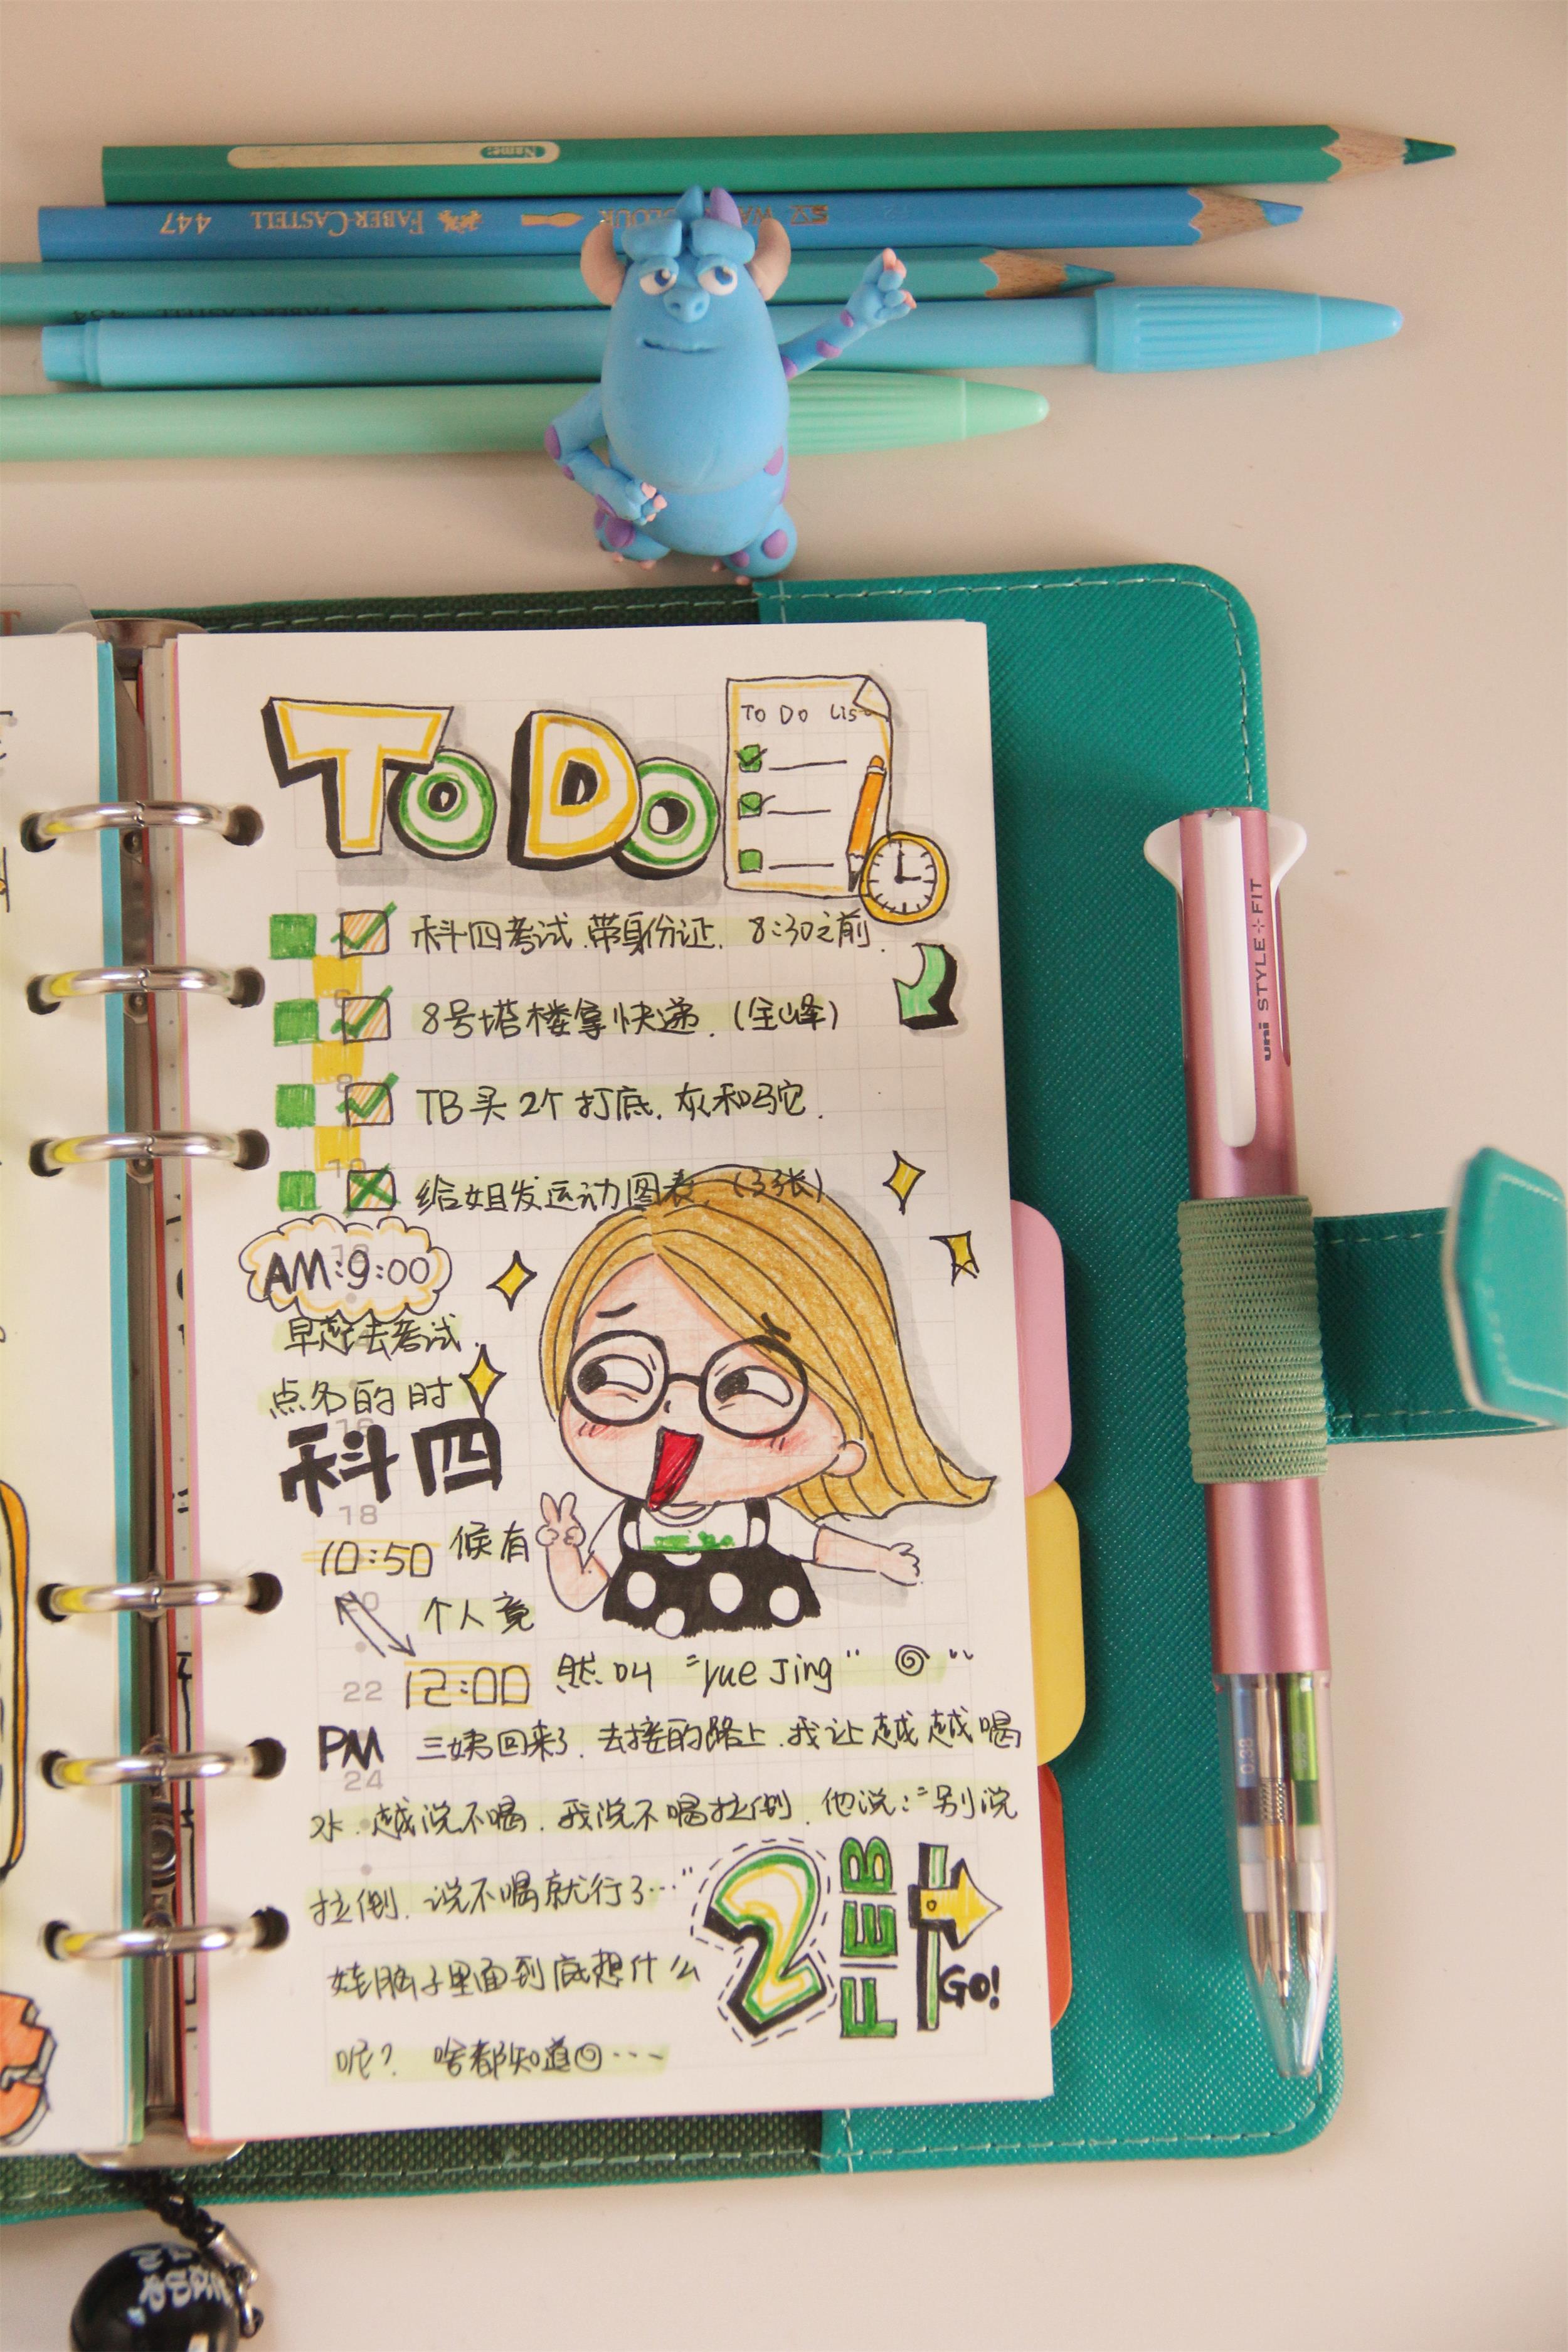 Name:
447 FABER-CASTELL
To Do
To Do List
科四考试.带身份证. 8:30之前.
8号塔楼拿快递.(全峰)
TB买2个打底.灰和驼.
给姐发运动图表.(33张)
AM:9:00
早起去考试.
点名的时
科四
18
10:50 候有
个人竟
22 12:00 然叫 "yue Jing"
PM 三姨回来了.去接的路上.我让越越喝
24
水.越说不喝.我说不喝拉倒.他说:"别说
拉倒.说不喝就行了…"
娃脑子里面到底想什么
呢? 啥都知道…
2 FEB
GO!
uni STYLE FIT
0.38